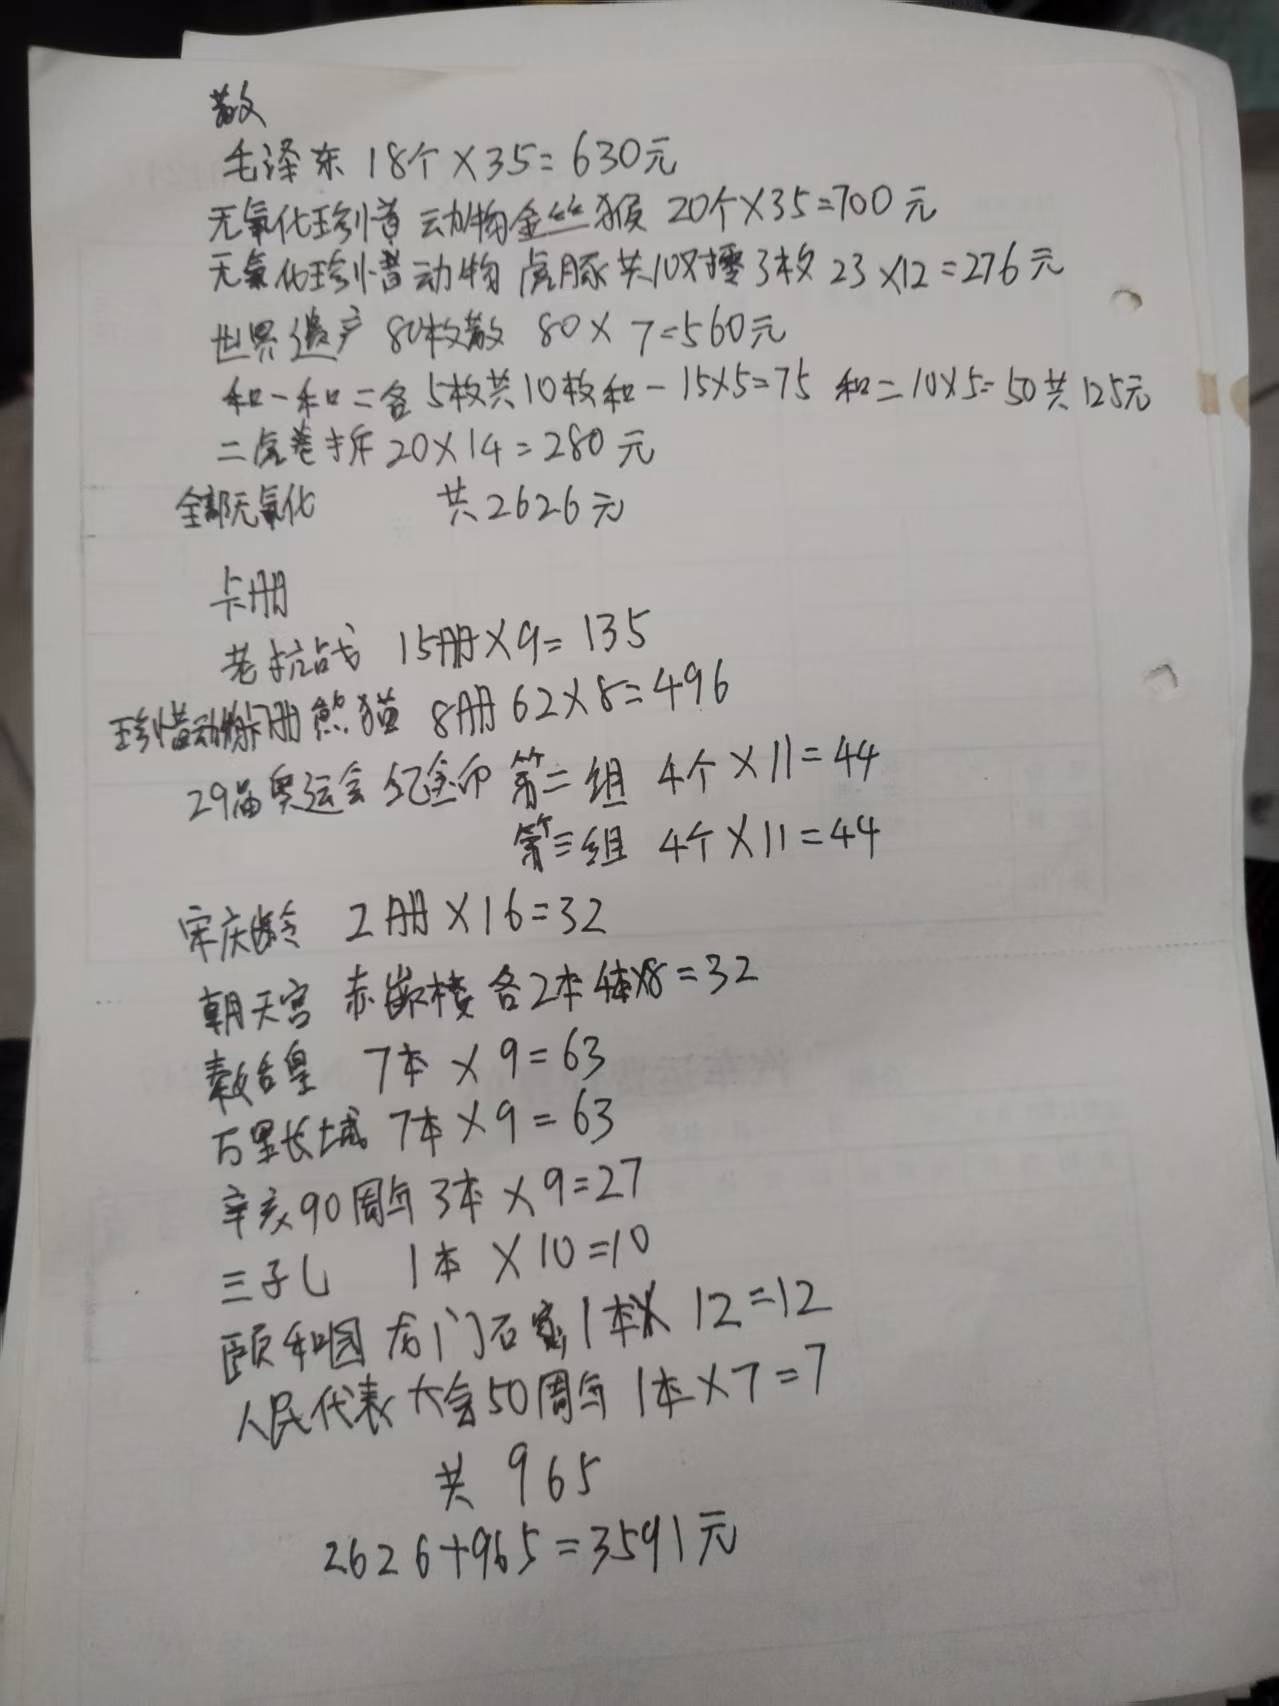 散
毛泽东 18个×35=630元
无氧化珍惜动物金丝猴 20个×35=700元
无氧化珍惜动物 虎豚共10对零3枚 23×12=276元
世界遗产 80枚散 80×7=560元
和一和二各5枚共10枚和一15×5=75 和二10×5=50共125元
二虎卷拆20×14=280元
全部无氧化 共2626元
卡册
老抗战 15册×9=135
珍惜动物卡册熊猫 8册62×8=496
29届奥运会纪念币 第二组 4个×11=44
第三组 4个×11=44
宋庆龄 2册×16=32
朝天宫 赤嵌楼 各2本4本×8=32
秦始皇 7本×9=63
万里长城 7本×9=63
辛亥90周年3本×9=27
三孔 1本×10=10
颐和园 龙门石窟1本× 12=12
人民代表大会50周年 1本×7=7
共 965
2626+965=3591元